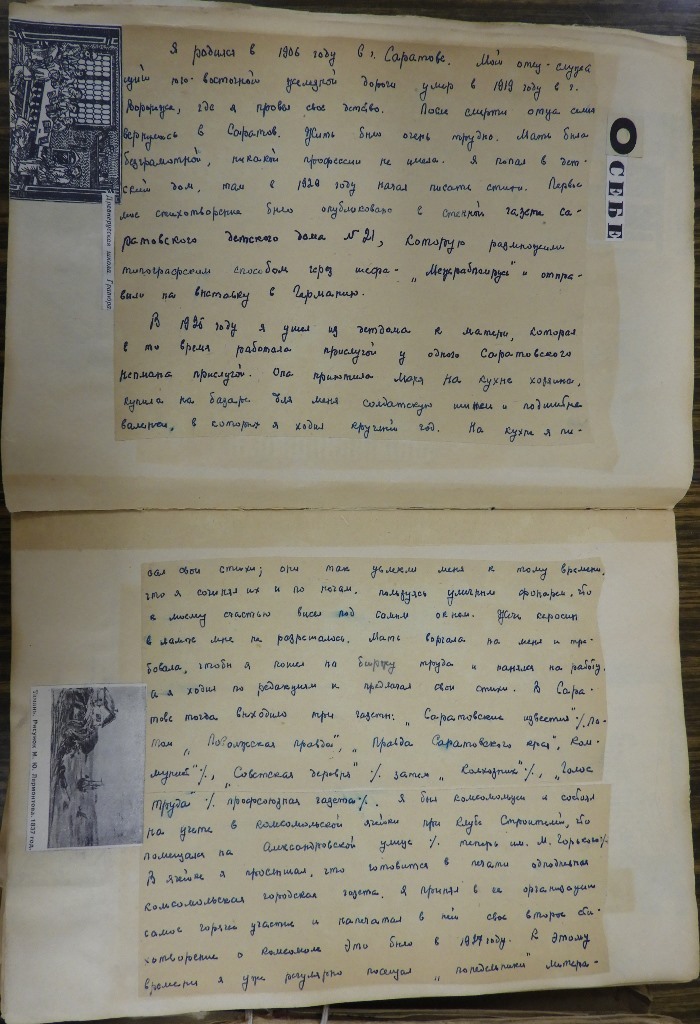 О СЕБЕ
Я родился в 1906 году в г. Саратове. Мой отец-служа
щий юго-восточной железной дороги умер в 1919 году в г.
где я провел свое детство. После смерти отца семья
вернулась в Саратов. Жить было очень трудно. Мать была
безграмотной, никакой профессии не имела. Я попал в дет-
ский дом, там в году начал писать стихи. Первое
мое стихотворение было опубликовано в стенной газете Са-
ратовского детского дома № 21, которую размножили
типографским способом через шефа- „Межрабпомрусь" и отпра-
вили на выставку в Германию.
В году я ушел из детдома к матери, которая
в то время работала прислугой у одного Саратовского
нэпмана прислугой. Она приютила меня на кухне хозяина,
купила на базаре для меня солдатскую шинель и подшитые
валенки, в которых я ходил круглый год. На кухне я пи-
Древнерусская школа. Гравюра.
сал свои стихи; они так увлекли меня к тому времени,
что я сочинял их и по ночам, пользуясь уличным фонарем, что
к моему счастью висел под самым окном. Жечь керосин
в лампе мне не разрешалось. Мать ворчала на меня и тре-
бовала, чтобы я пошел на биржу труда и нанялся на работу,
а я ходил по редакциям и предлагал свои стихи. В Сара-
тове тогда выходило три газеты: „Саратовские известия" /. По-
том „Поволжская правда", „Правда Саратовского края", Ком-
мунист"/., „Советская деревня" /. затем „Колхозник"/., „Голос
труда" /. профсоюзная газета/. Я был комсомольцем и состоял
на учете в комсомольской ячейке при клубе Строителей, что
помещался на Александровской улице /. теперь им. М. Горького/.
В ячейке я прослышал, что готовится к печати однодневная
комсомольская городская газета. Я принял в ее организации
самое горячее участие и напечатал в ней свое второе сти-
хотворение о комсомоле. Это было в 1927 году. К этому
времени я уже регулярно посещал „понедельники" литера-
Рисунок М. Ю. Лермонтова. 1837 год.